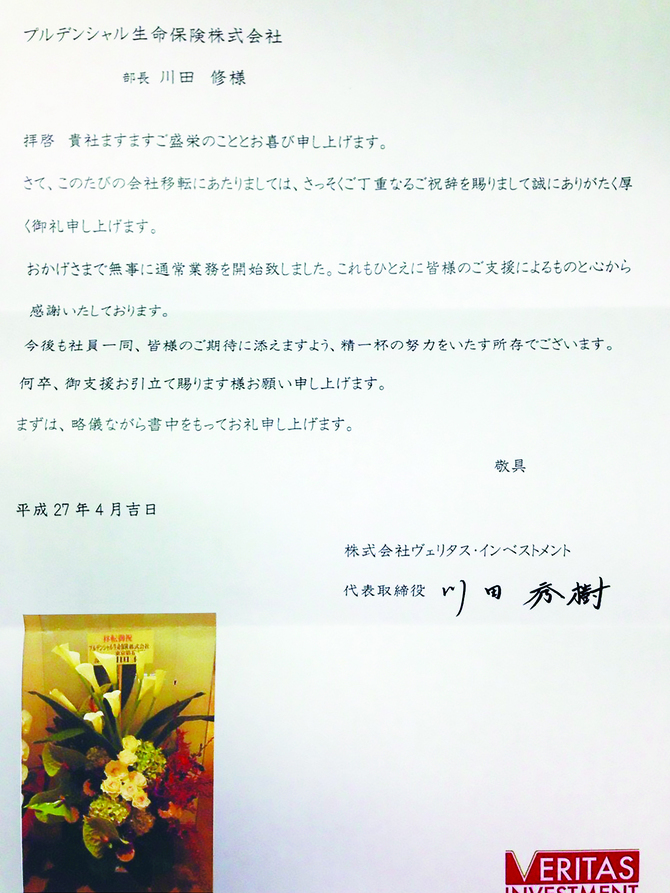 プルデンシャル生命保険株式会社
部長 川田 修様
拝啓 貴社ますますご盛栄のこととお喜び申し上げます。
さて、このたびの会社移転にあたりましては、さっそくご丁重なるご祝辞を賜りまして誠にありがたく厚
く御礼申し上げます。
おかげさまで無事に通常業務を開始致しました。これもひとえに皆様のご支援によるものと心から
感謝いたしております。
今後も社員一同、皆様のご期待に添えますよう、精一杯の努力をいたす所存でございます。
何卒、御支援お引立て賜ります様お願い申し上げます。
まずは、略儀ながら書中をもってお礼申し上げます。
敬具
平成27年4月吉日
株式会社ヴェリタス・インベストメント
代表取締役 川田 秀樹
移転御祝
プルデンシャル生命保険株式会社
VERITAS
INVESTMENT